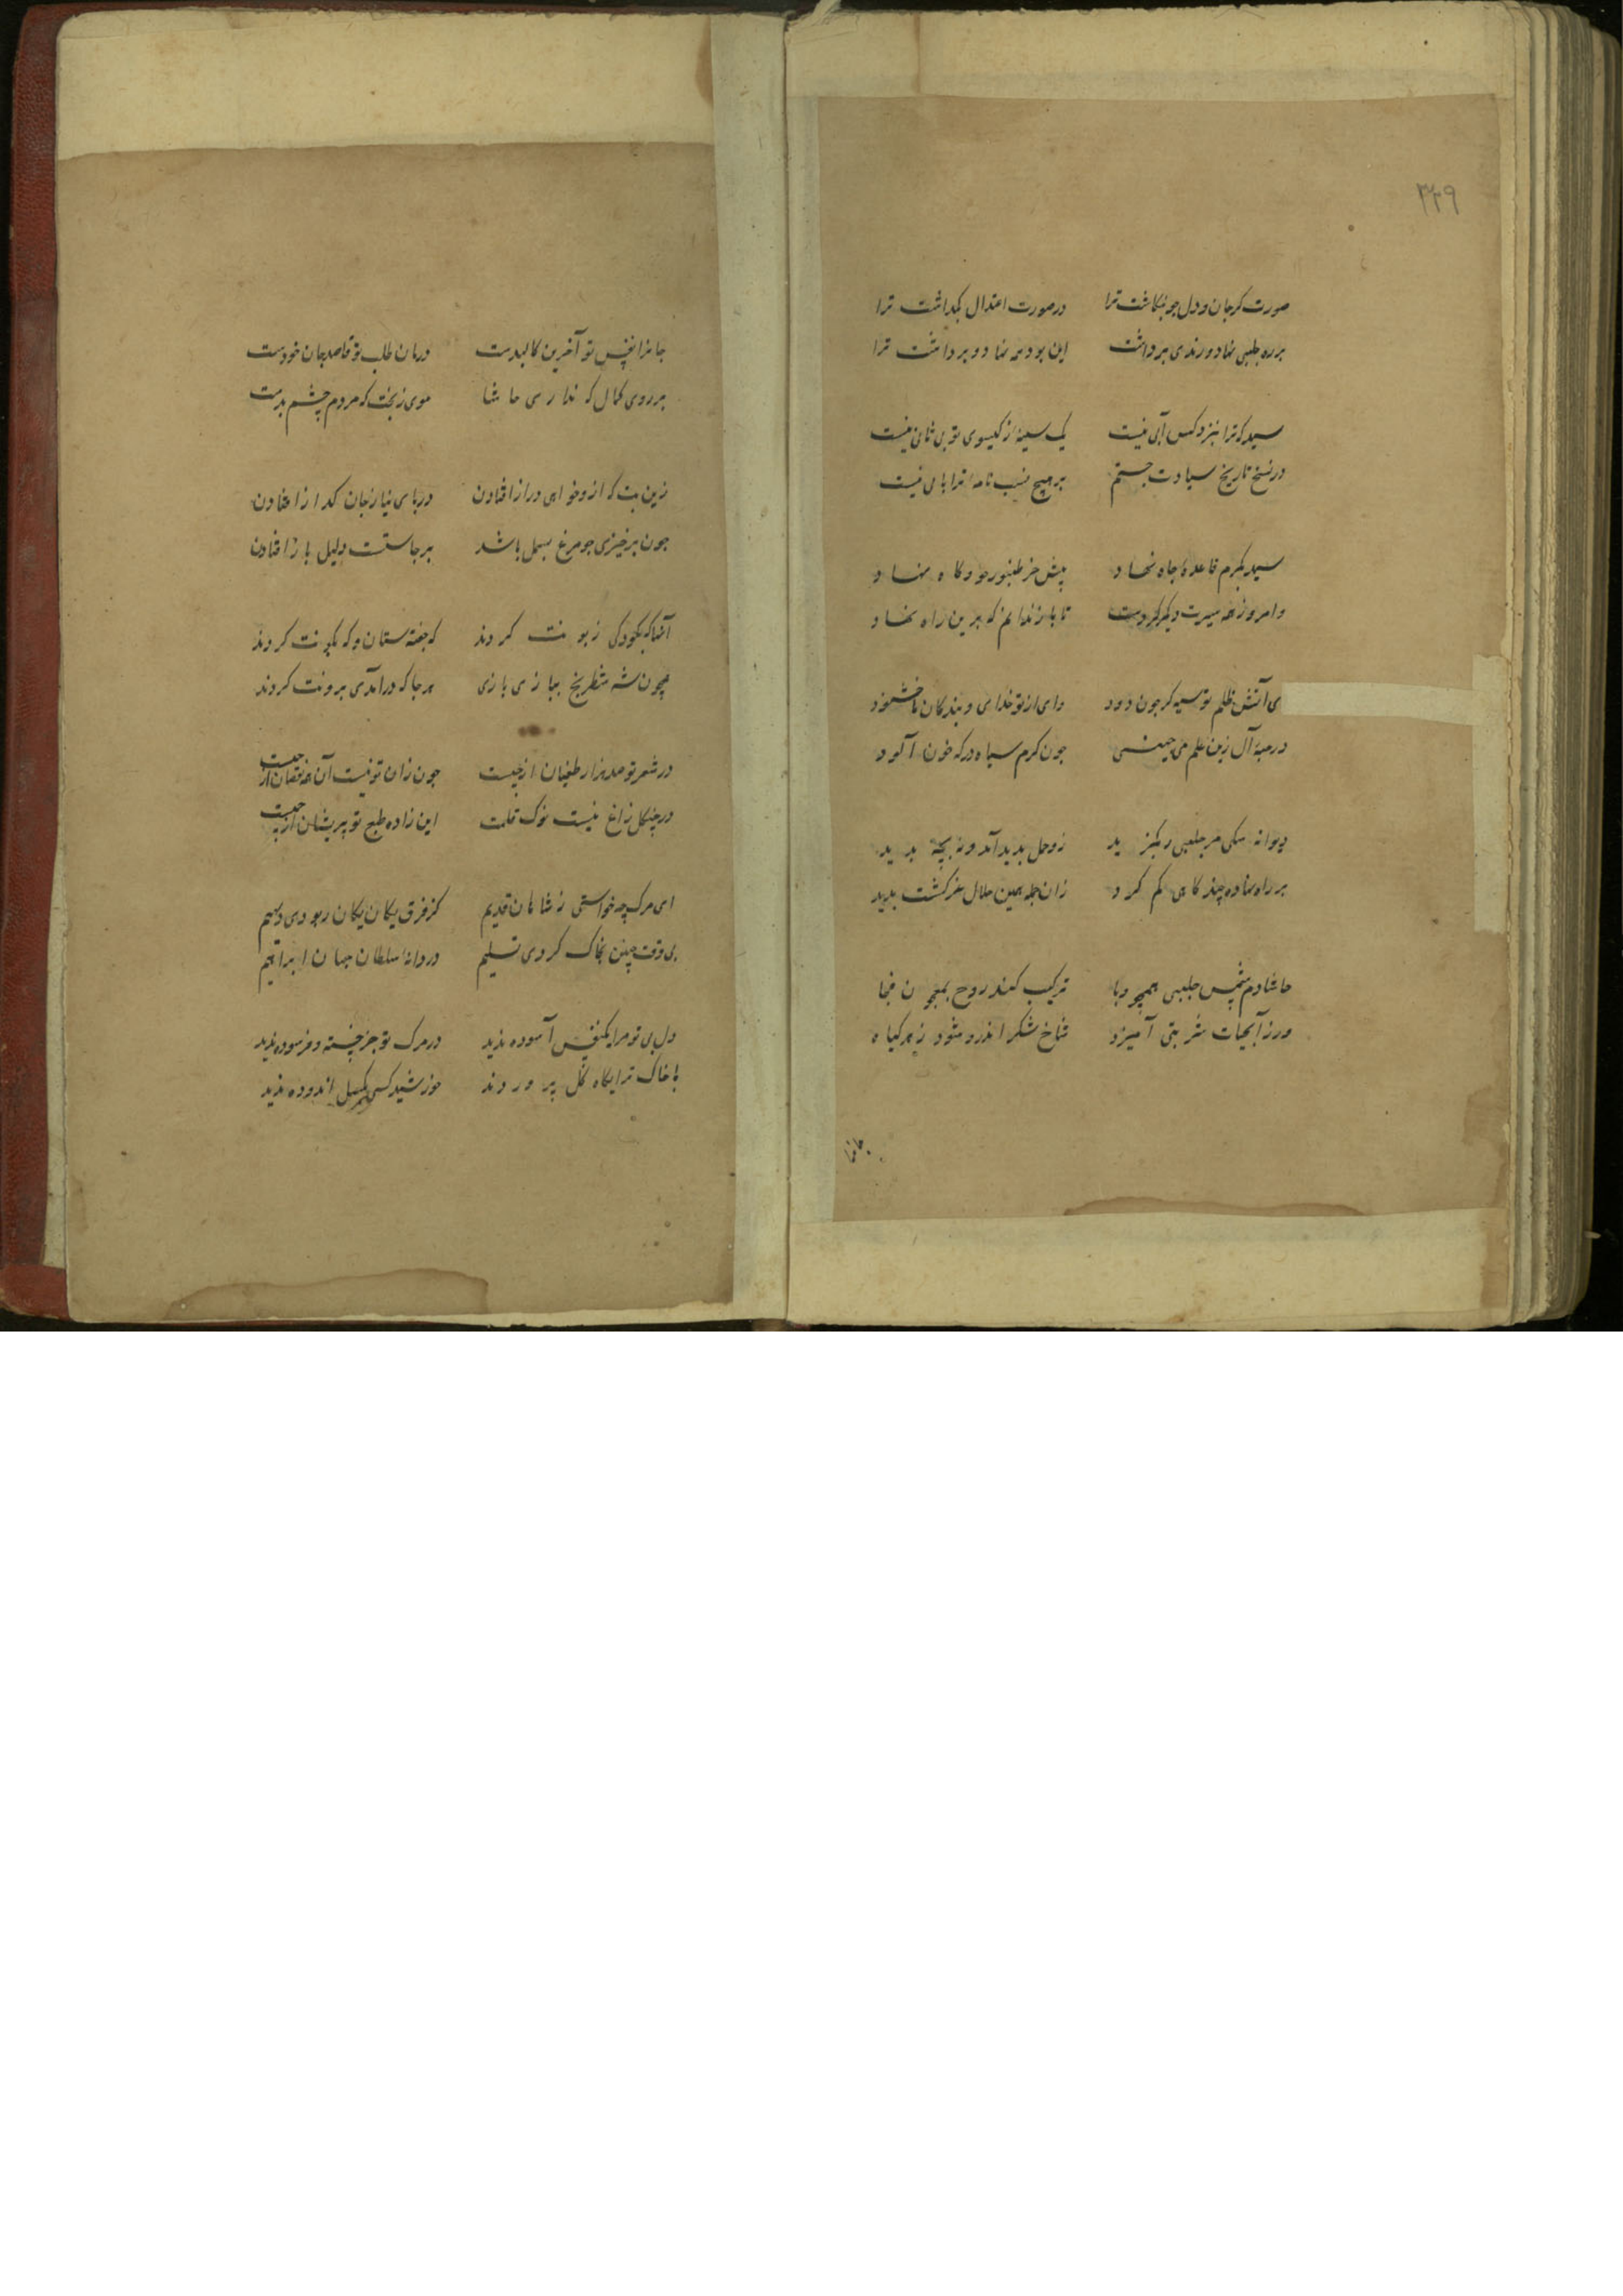 ۳۲۹
صورت کر جان و دل چو بنکاشت ترا در صورت اعتدال بکداشت ترا
بر ره جلبی نهاد و رندی برداشت این بود که نهاد و برداشت ترا
سید که ترا بنزد کس آبی نیست یک سینه از کیسوی تو بی نیست
در نسخ تاریخ سیادت جستم بر هیچ نسب نامه ترا بابی نیست
سید بکرم قاعده جاه نهاد پیش خر طنبور خود کاه نهاد
و امروز همه سیرت دیکر کردست تا باز ندانم که برین راه نهاد
ی آتش ظلم تو سیه کر چون دود وای از تو خدای و بندکان ناخشنود
در جبه آل زین علم می چون کرم سیاه در که خون آلود
دیوانه سکی مر جلبی را بکزید زو حل بدید آمد و نه بچه بدید
بر راه نهاده چند کاهی کم کرد زان جمله همین حلال کشت بدید
حاشا دم شمس جلبی همچو وبا ترکیب کند روح بمعجون فجا
ور ز آبحیات شربتی آمیزد شاخ شکر اندرو شود زهر کیاه
جانرا نفس تو آخرین کالبدست درمان طلب تو قاصد جان خودست
بر روی کمال که نداری حاشا موی زنخت که مردم چشم بدست
زین بت که ازو خواهی دراز افتادن در پای نیاز جان کداز افتادن
چون برخیزی چو مرغ بسمل باشد برجاستنت دلیل باز افتادن
آنها که بکودکی زبونت کردند که جفته ستان و که نکونت کردند
همچون شه شطرنج ببازی بازی هر جا که درآمدی برونت کردند
در شعر تو صد هزار طغیان از چیست چون زان تو نیست آن همه نقصان از چیست
در چنکل زاغ نیست نوک قلمت این زاده طبع تو پریشان از چیست
ای مرک چه خواستی ز شاهان قدیم کز فرق یکان یکان ربودی دیهیم
بی وقت چنین بخاک کردی تسلیم دردانه سلطان جهان ابراهیم
دل بی تو مرا یکنفس آسوده ندید در مرک تو جز خسته و فرسوده ندید
با خاک ترا بکاه کل پروردند خورشید کسی بکل اندوده ندید
جانرا